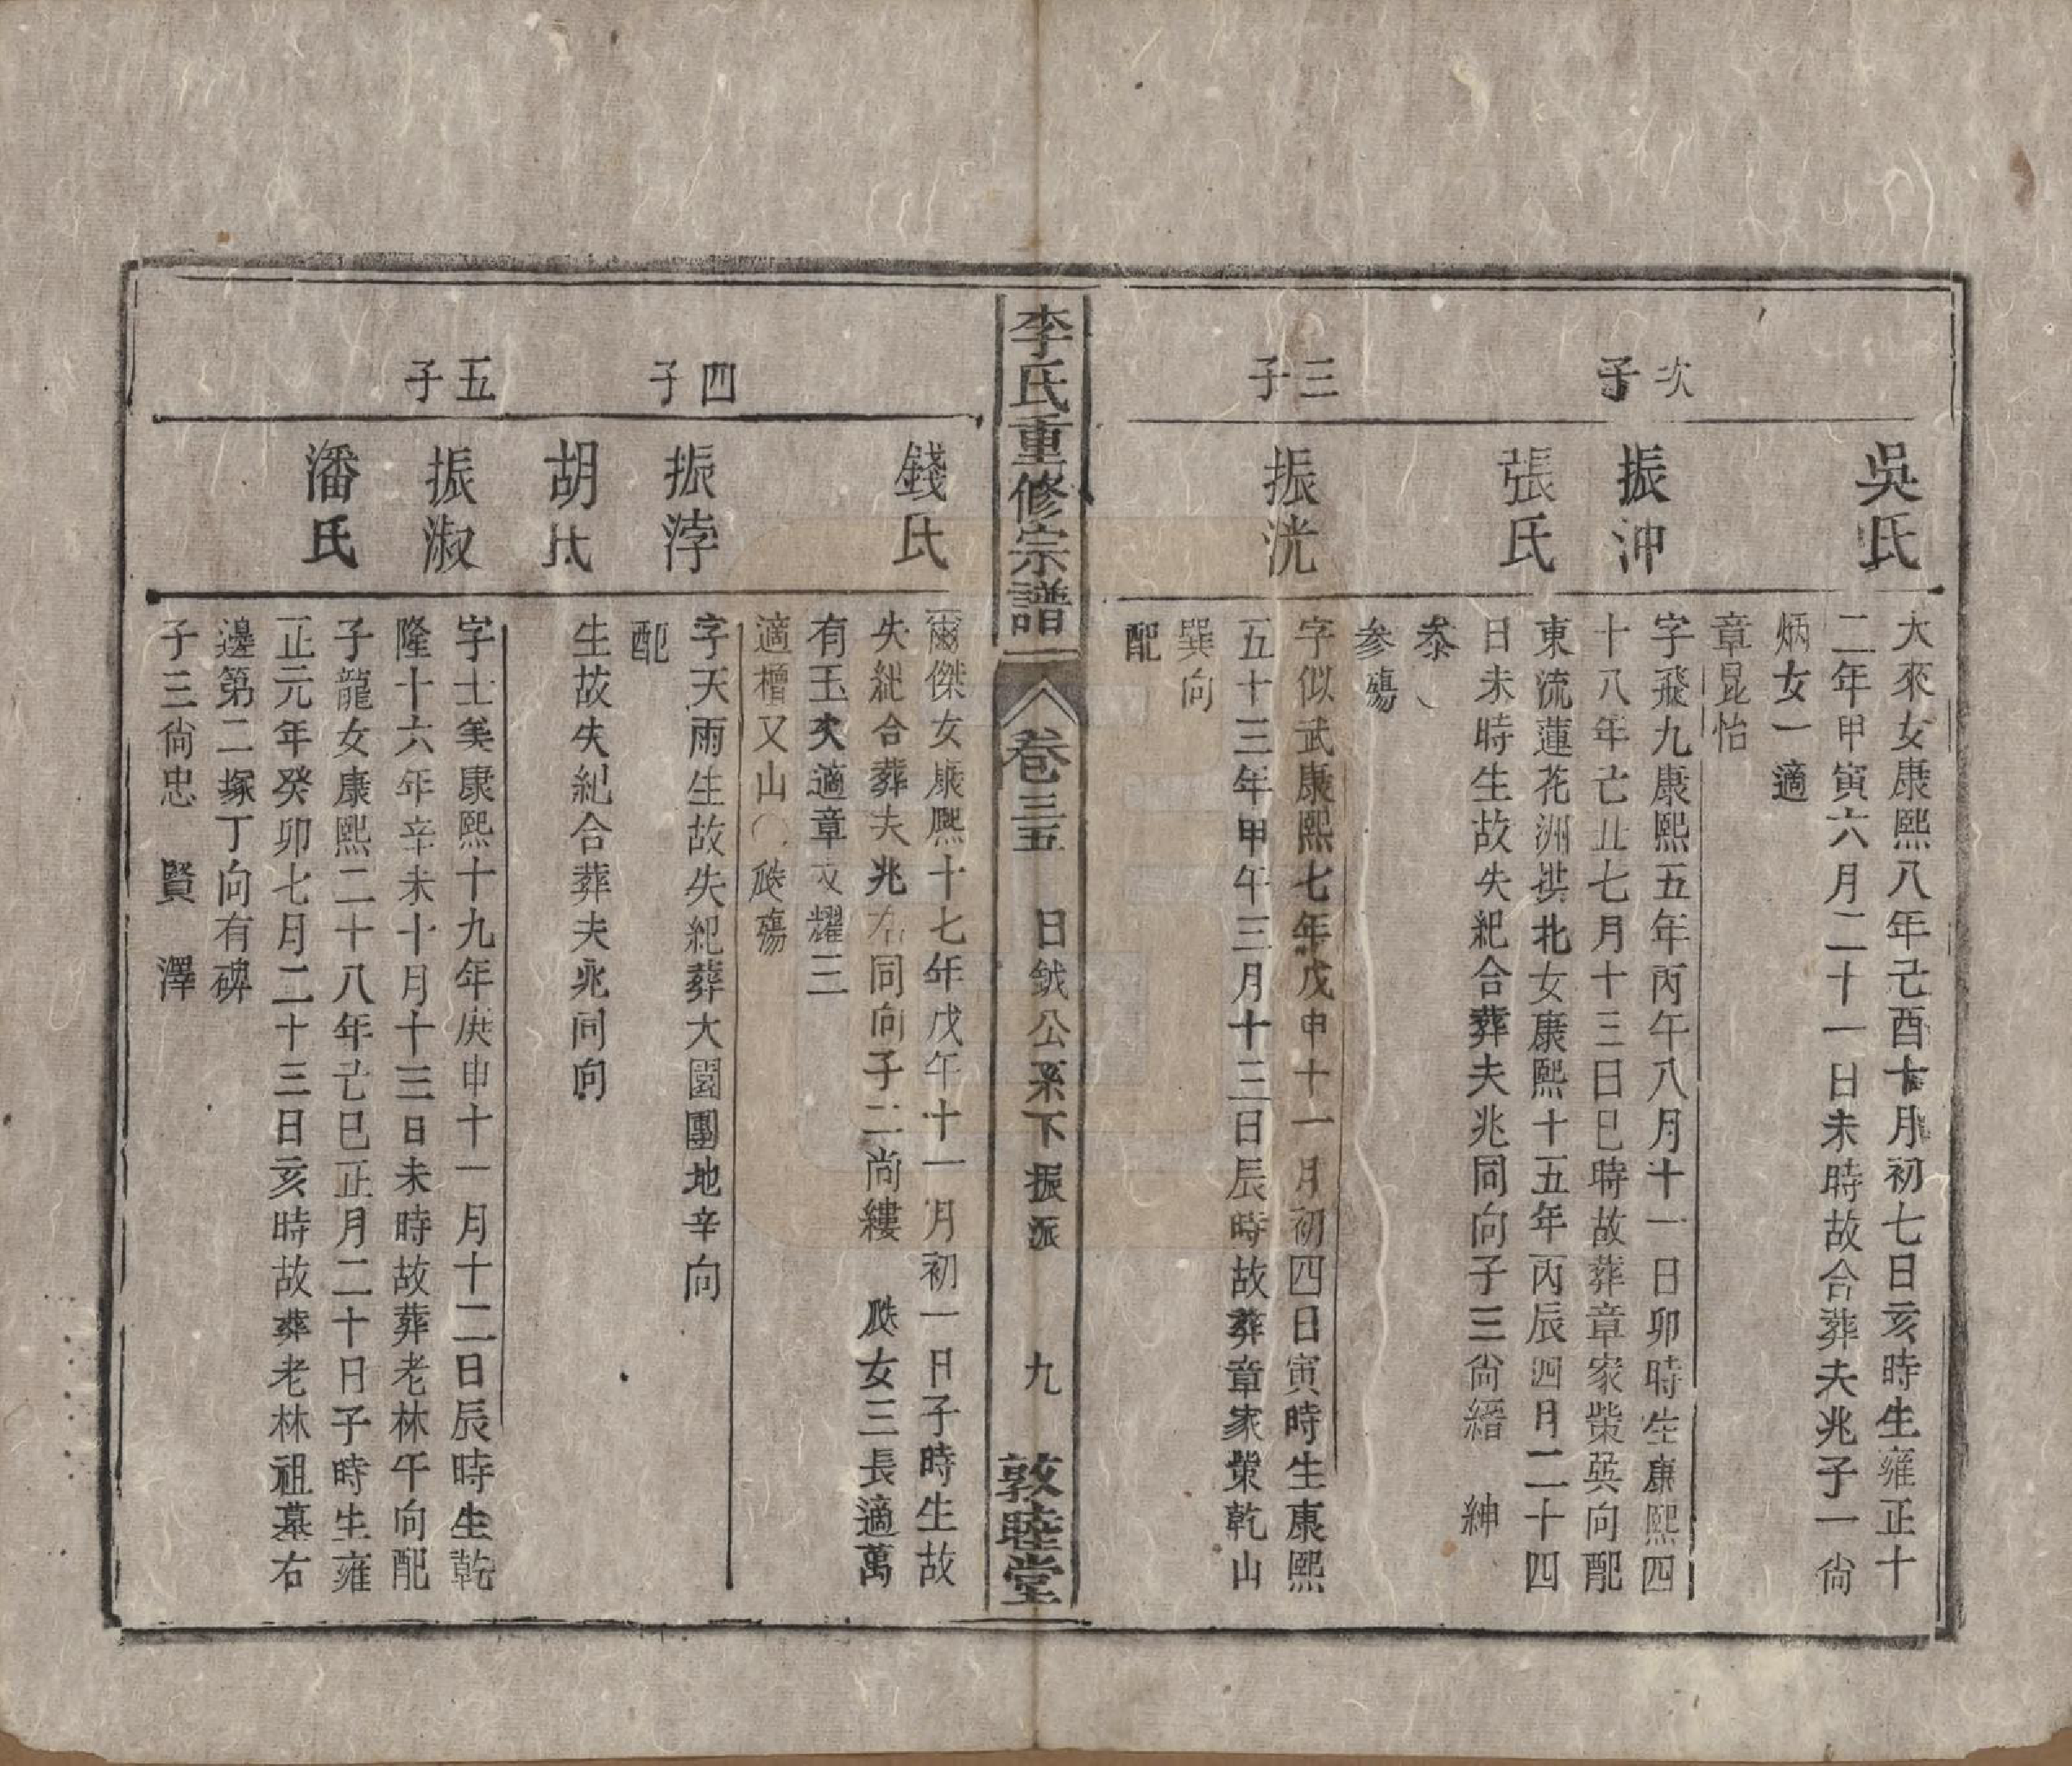 吳氏
大來女康熙八年己酉十月初七日亥時生雍正十
二年甲寅六月二十一日未時故合葬夫兆子一尚
炳女一適
章昆怡
次子
振沖
字飛九康熙五年丙午八月十一日卯時生康熙四
十八年己丑七月十三日巳時故葬章家柴巽向配
張氏
東流蓮花洲拱北女康熙十五年丙辰四月二十四
日未時生故失紀合葬夫兆同向子三尚縉 紳
泰
参殤
三子
振洸
字似武康熙七年戊申十一月初四日寅時生康熙
五十三年甲午三月十三日辰時故葬章家柴乾山
巽向
配
李氏重修宗譜
卷三五 日鉞公系下振派 九 敦睦堂
錢氏
爾傑女康熙十七年戊午十一月初一日子時生故
失紀合葬夫兆右同向子二尚縷 瓞女三長適萬
有玉次適章文耀三
適檀又山〇瓞殤
四子
振浡
字天雨生故失紀葬大園團地辛向
配
胡氏
生故失紀合葬夫兆同向
五子
振淑
字士美康熙十九年庚申十一月十二日辰時生乾
隆十六年辛未十月十三日未時故葬老林午向配
潘氏
子龍女康熙二十八年己巳正月二十日子時生雍
正元年癸卯七月二十三日亥時故葬老林祖墓右
邊第二塚丁向有碑
子三尚忠 賢 澤